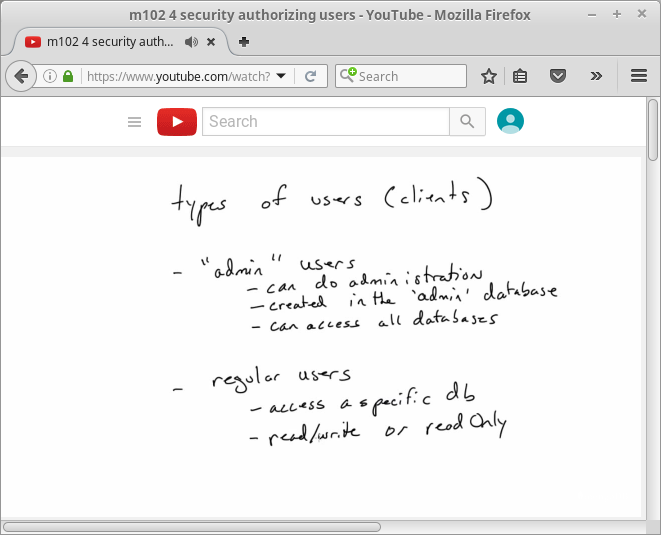 m102 4 security authorizing users - YouTube - Mozilla Firefox
m102 4 security auth...
https://www.youtube.com/watch?
Search
Search
types of users (clients)
- "admin" users
- can do administration
- created in the 'admin' database
- can access all databases
- regular users
- access a specific db
- read/write or readOnly